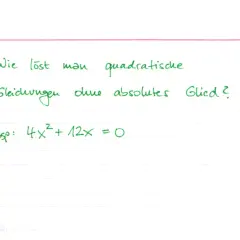 Wie löst man quadratische
Gleichungen ohne absolutes Glied?
Bsp: 4x² + 12x = 0